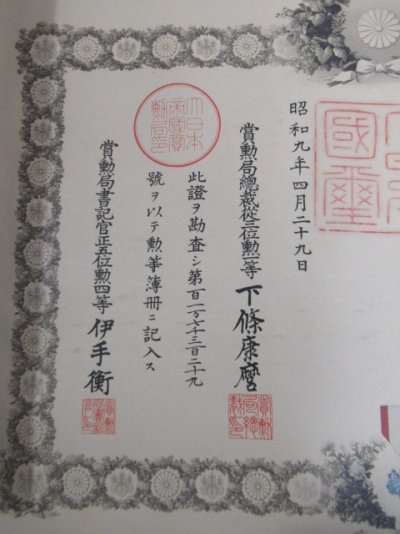 國璽
昭和九年四月二十九日
賞勲局總裁從三位勲一等 下條康麿
大日本帝國賞勲局印
此證ヲ勘査シ第百一万七千三百二十九
號ヲ以テ勲等簿冊ニ記入ス
賞勲局書記官正五位勲四等 伊手衡